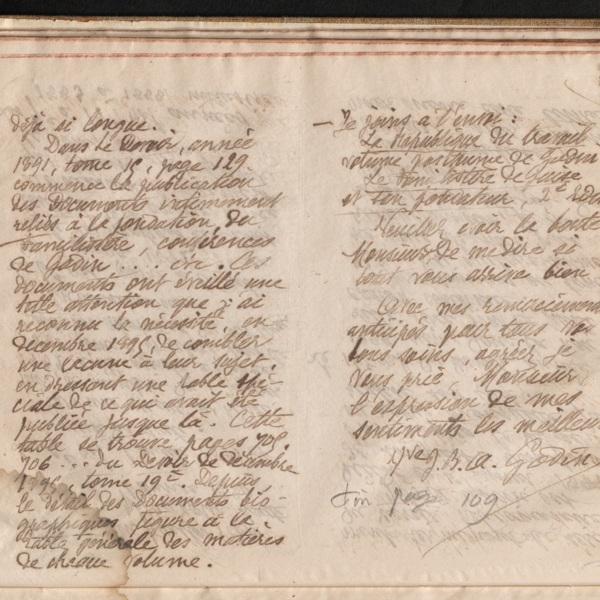 déjà si longue.
Dans le Devoir, année
1891, tome 15, page 129
commence la publication
des documents intimement
reliés à la fondation du
Familistère, conférences
de Godin.... etc. Ces
documents ont éveillé une
telle attention que j'ai
reconnu la nécessité, en
décembre 1895 de combler
une lacune à leur sujet,
en dressant une table spé-
ciale de ce qui avait été
publié jusque là. Cette
table se trouve pages 705
706... du Devoir de décembre
1895, tome 19e. Depuis,
le détail des documents bio-
graphiques figure à la
table générale des matières
de chaque volume.
— Je joins à l'envoi:
La République du travail
volume posthume de Godin
Le Familistère de Guise
et son fondateur, 2e édit
Veuillez avoir la bonté
Monsieur de me dire si
tout vous arrive bien
Avec mes remerciements
anticipés pour tous vos
bons soins, agréez je
vous prie, Monsieur
l'expression de mes
sentiments les meilleurs
Vve J. B. A. Godin
fin page 109